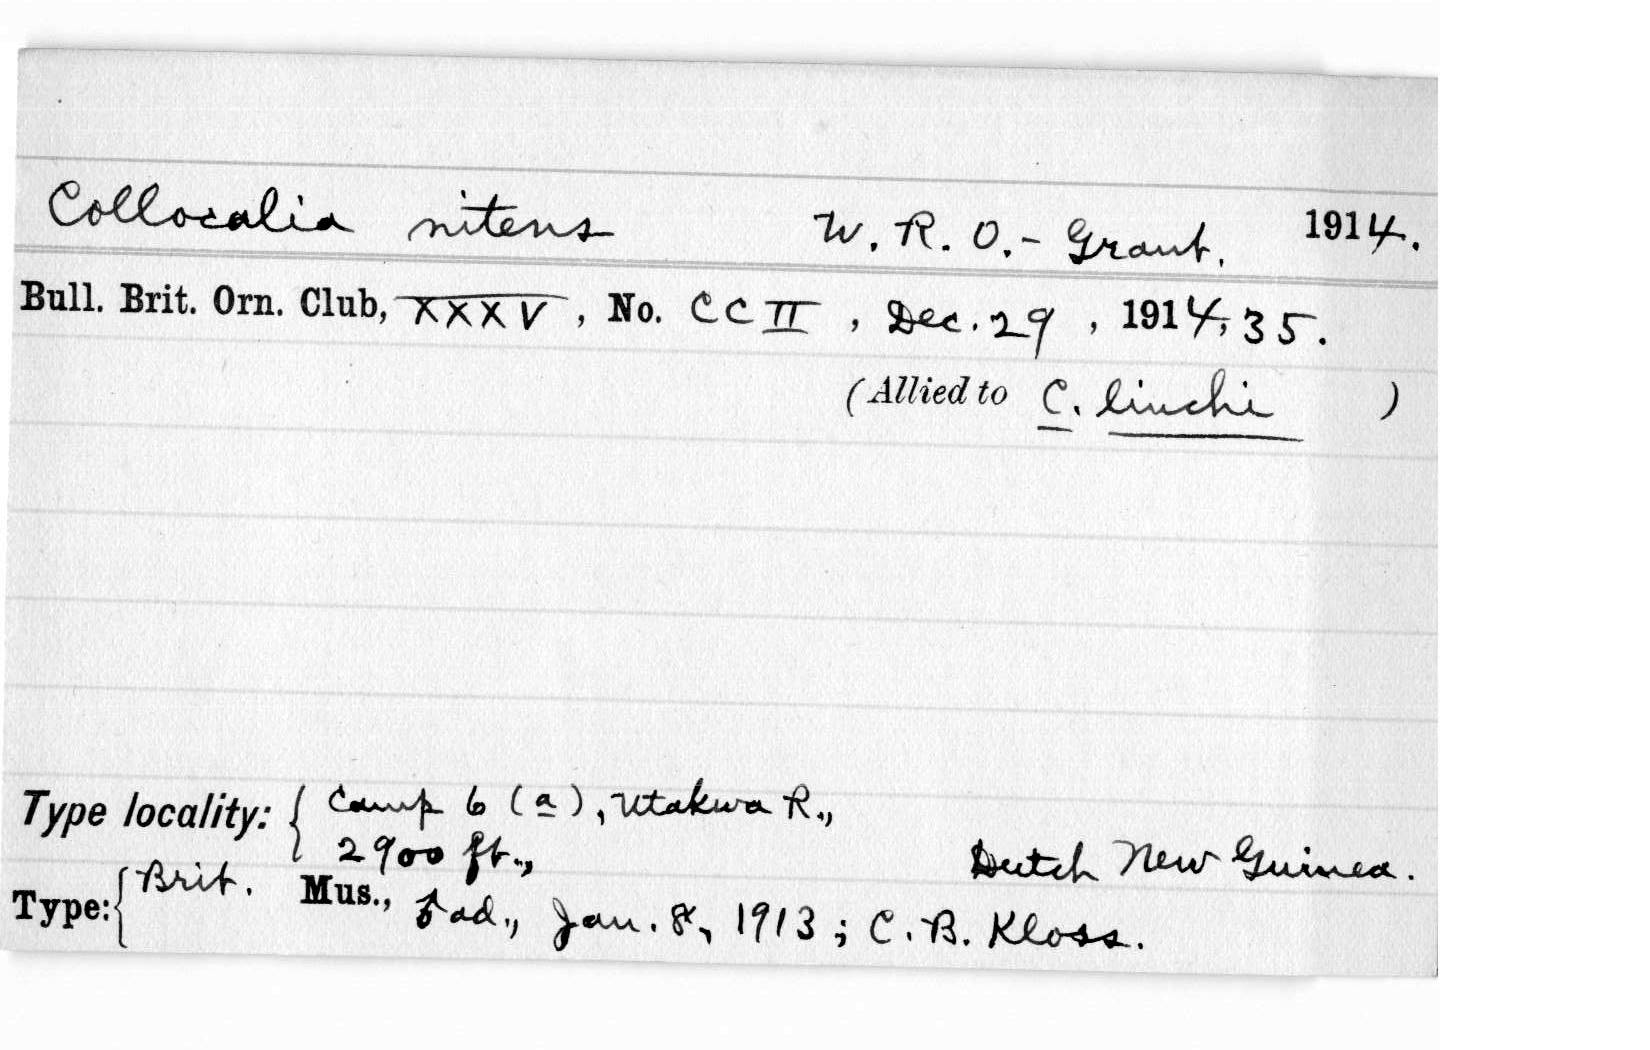 Collocalia nitens W. R. O.-Grant. 1914.
Bull. Brit. Orn. Club, XXXV, No. CCII, Dec. 29, 1914, 35.
(Allied to C. linchi )
Type locality: { Camp 6 (a), Utakwa R.,
2900 ft., Dutch New Guinea.
Type: { Brit. Mus., ad., Jan. 8, 1913; C. B. Kloss.